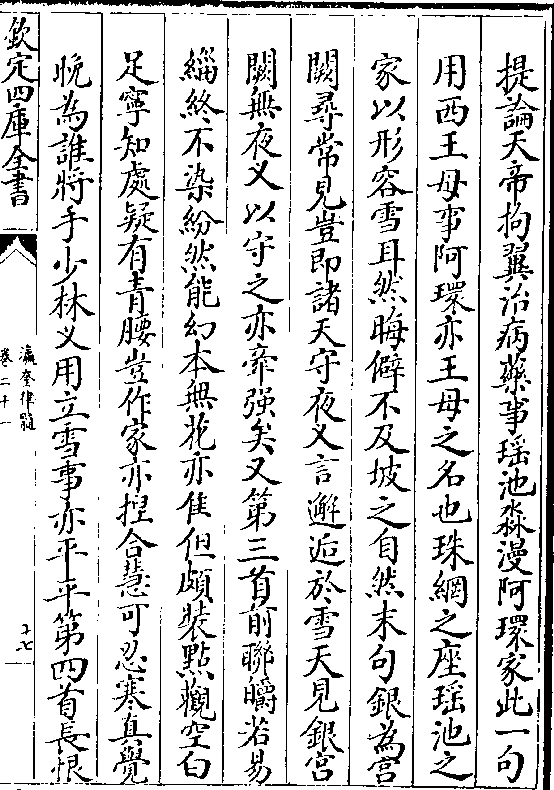 提論天帝拘翼治病藥事瑶池淼漫阿環家此一句
用西王母事阿環亦王母之名也珠網之座瑶池之
家以形容雪耳然晦僻不及坡之自然末句銀為宮
闕尋常見豈即諸天守夜义言邂逅於雪天見銀宮
闕無夜义以守之亦牽强矣又第三首前聯皭若易
緇終不染紛然能幻本無花亦佳但頗裝點觀空白
足寜知處疑有青腰豈作家亦揑合慧可忍寒真覺
晚為誰將手少林义用立雪事亦平平第四首長恨
欽定四庫全書
瀛奎律髓
卷二十一
十七